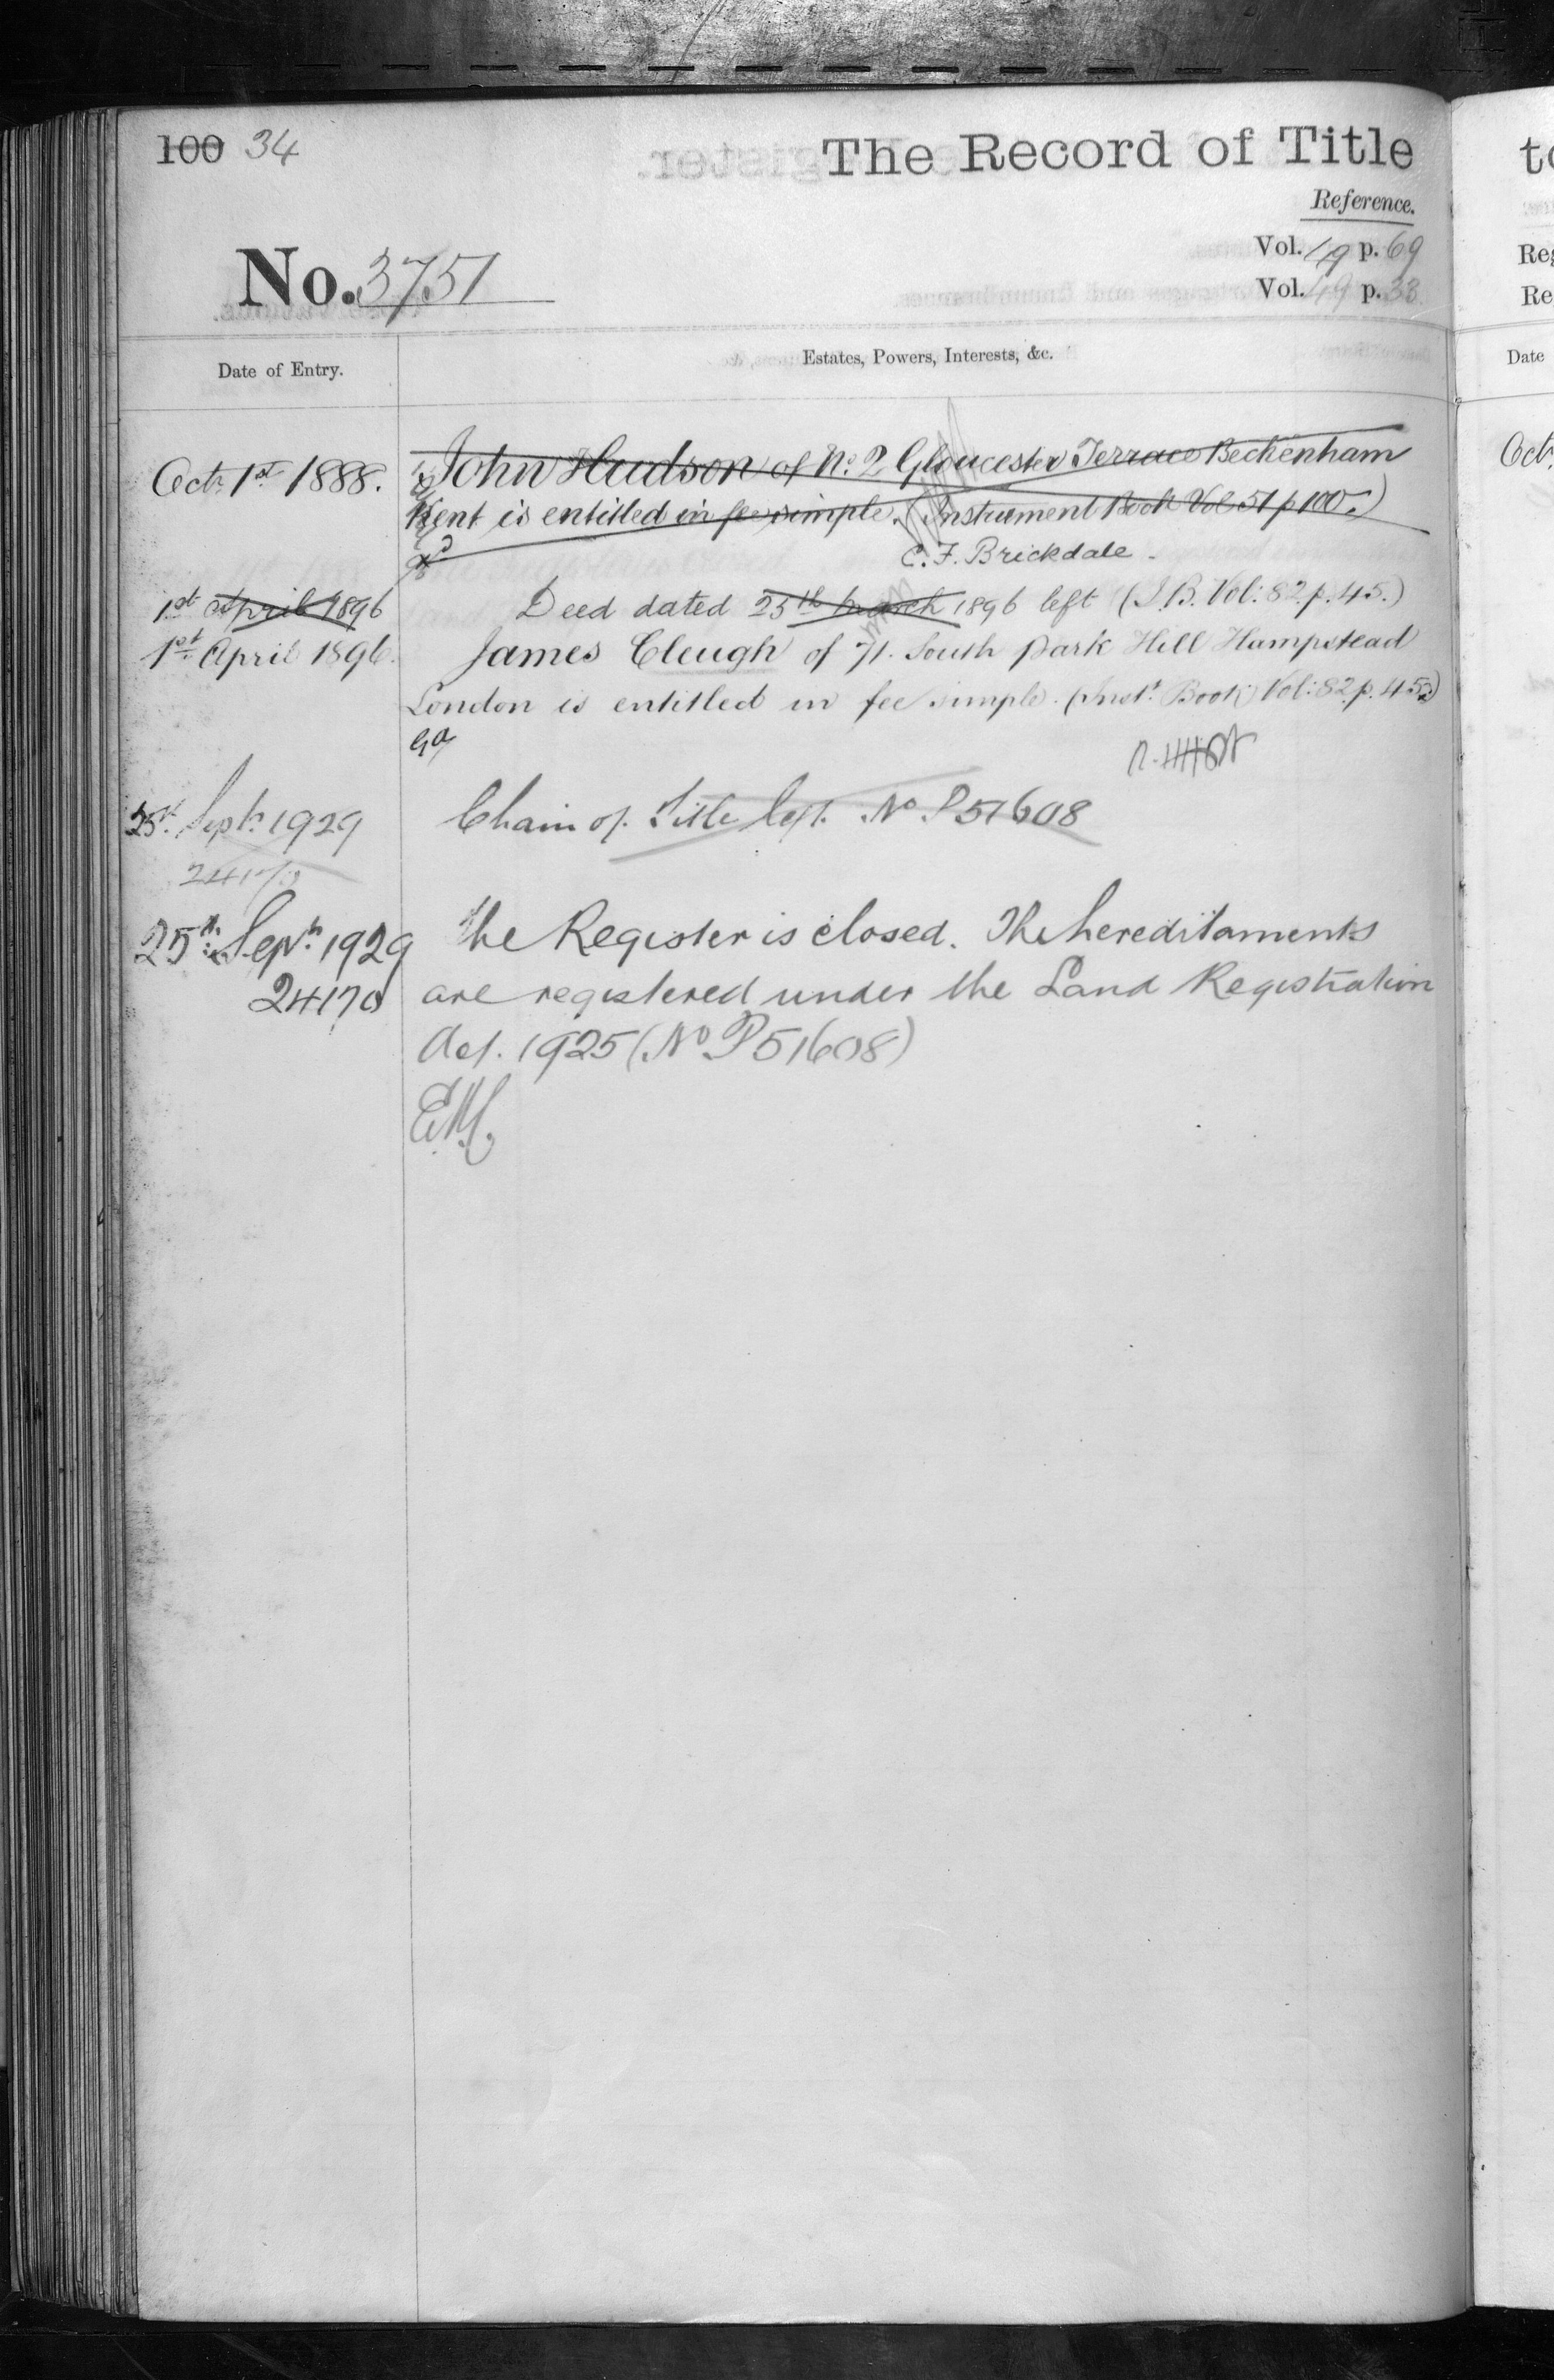 100 34
The Record of Title
Reference.
Vol. 49 p. 69
No. 3751
Vol. 49 p. 33
Date of Entry.
Estates, Powers, Interests, &c.
Octr. 1st 1888.
John Hudson of No. 2 Gloucester Terrace Beckenham
Kent is entitled in fee simple. (Instrument Book Vol 51 p 100.)
C. F. Brickdale
1st April 1896
Deed dated 25th March 1896 left (I.B. Vol: 82. p. 45.)
1st April 1896.
James Cleugh of 71. South Park Hill Hampstead
London is entitled in fee simple. (Inst. Book Vol: 82. p. 45.)
25th Septr. 1929
Chain of Title left. No P51608
24170
25th Septr. 1929
The Register is closed. The hereditaments
24170
are registered under the Land Registration
Act. 1925 (No P51608)
to
Reg
Re
Date
Oct.